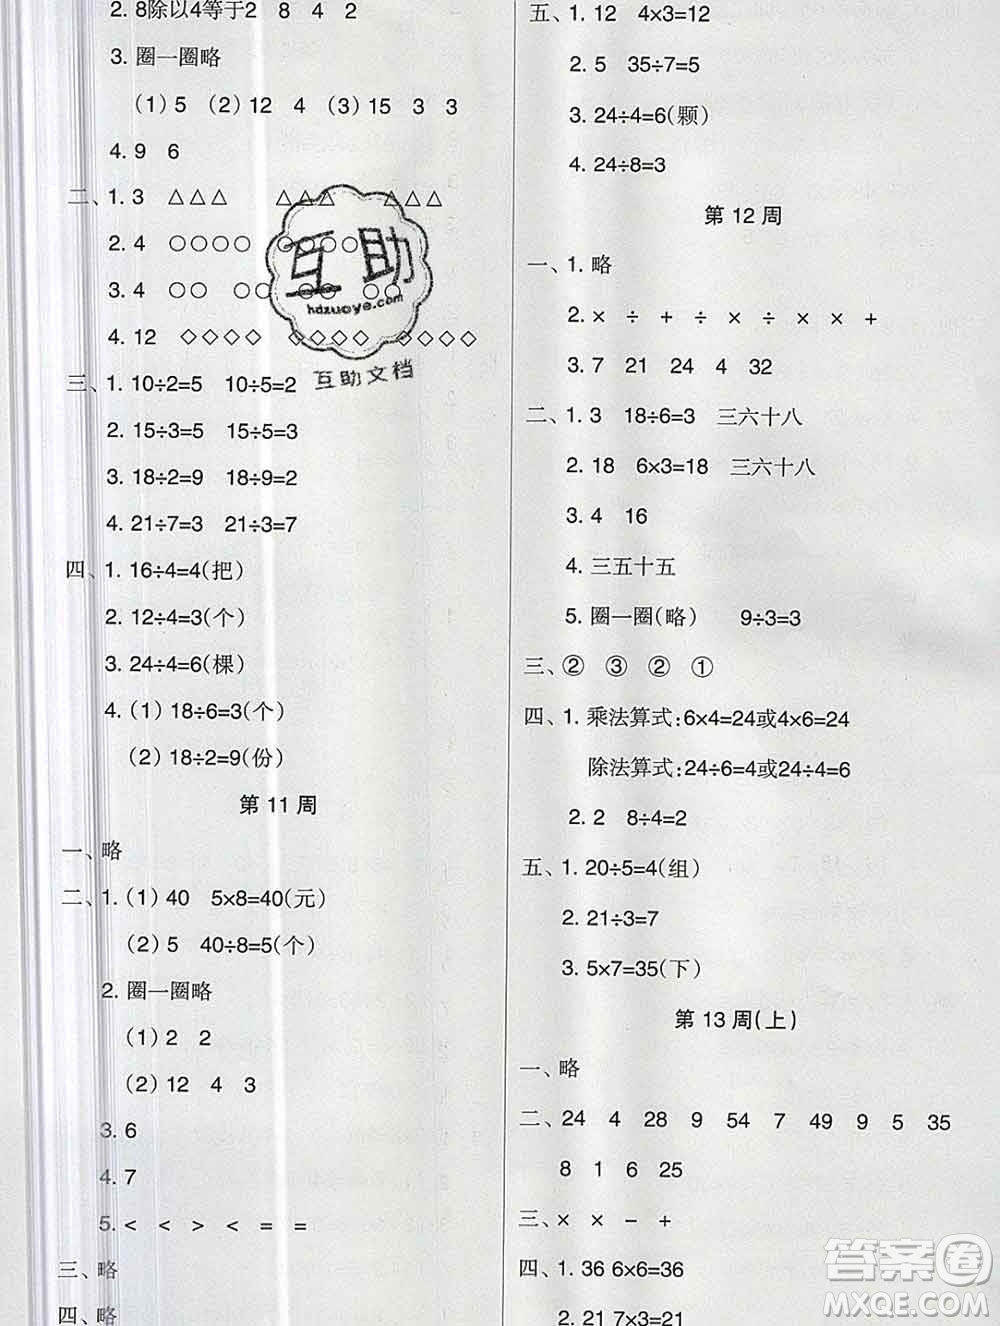 2. 8除以4等于2 8 4 2
3. 圈一圈略
(1) 5 (2) 12 4 (3) 15 3 3
4. 9 6
二、1. 3 △△△ △△△ △△△
2. 4 ○○○○ ○○○○
3. 4 ○○ ○○ ○○ ○○
4. 12 ◇◇◇◇ ◇◇◇◇ ◇◇◇◇
三、1. 10÷2=5 10÷5=2
2. 15÷3=5 15÷5=3
3. 18÷2=9 18÷9=2
4. 21÷7=3 21÷3=7
四、1. 16÷4=4(把)
2. 12÷4=3(个)
3. 24÷4=6(棵)
4. (1) 18÷6=3(个)
(2) 18÷2=9(份)
第 11 周
一、略
二、1. (1) 40 5×8=40(元)
(2) 5 40÷8=5(个)
2. 圈一圈略
(1) 2 2
(2) 12 4 3
3. 6
4. 7
5. < < > < = =
三、略
四、略
五、1. 12 4×3=12
2. 5 35÷7=5
3. 24÷4=6(颗)
4. 24÷8=3
第 12 周
一、1. 略
2. × ÷ + ÷ × ÷ × × +
3. 7 21 24 4 32
二、1. 3 18÷6=3 三六十八
2. 18 6×3=18 三六十八
3. 4 16
4. 三五十五
5. 圈一圈(略) 9÷3=3
三、② ③ ② ①
四、1. 乘法算式:6×4=24或4×6=24
除法算式:24÷6=4或24÷4=6
2. 2 8÷4=2
五、1. 20÷5=4(组)
2. 21÷3=7
3. 5×7=35(下)
第 13 周(上)
一、略
二、24 4 28 9 54 7 49 9 5 35
8 1 6 25
三、× × − +
四、1. 36 6×6=36
2. 21 7×3=21
互助
hdzuoye.com
互助文档
答案圈
MXQE.COM